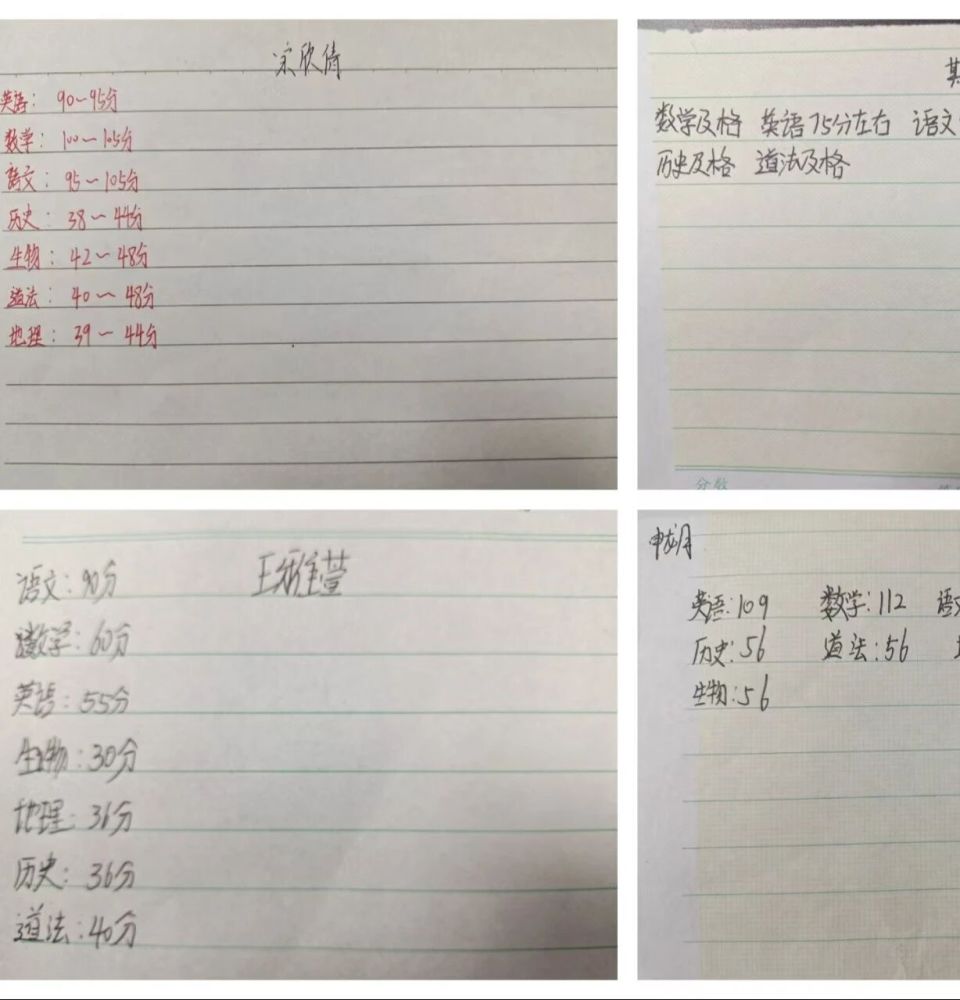 宋欣倩
英语：90~95分
数学：100~105分
语文：95~105分
历史：38~44分
生物：42~48分
道法：40~48分
地理：39~44分
数学及格 英语75分左右 语文
历史及格 道法及格
分数
语文：90分
王雅萱
数学：60分
英语：55分
生物：30分
地理：36分
历史：36分
道法：40分
申龙月
英语：109 数学：112 语文
历史：56 道法：56
生物：56